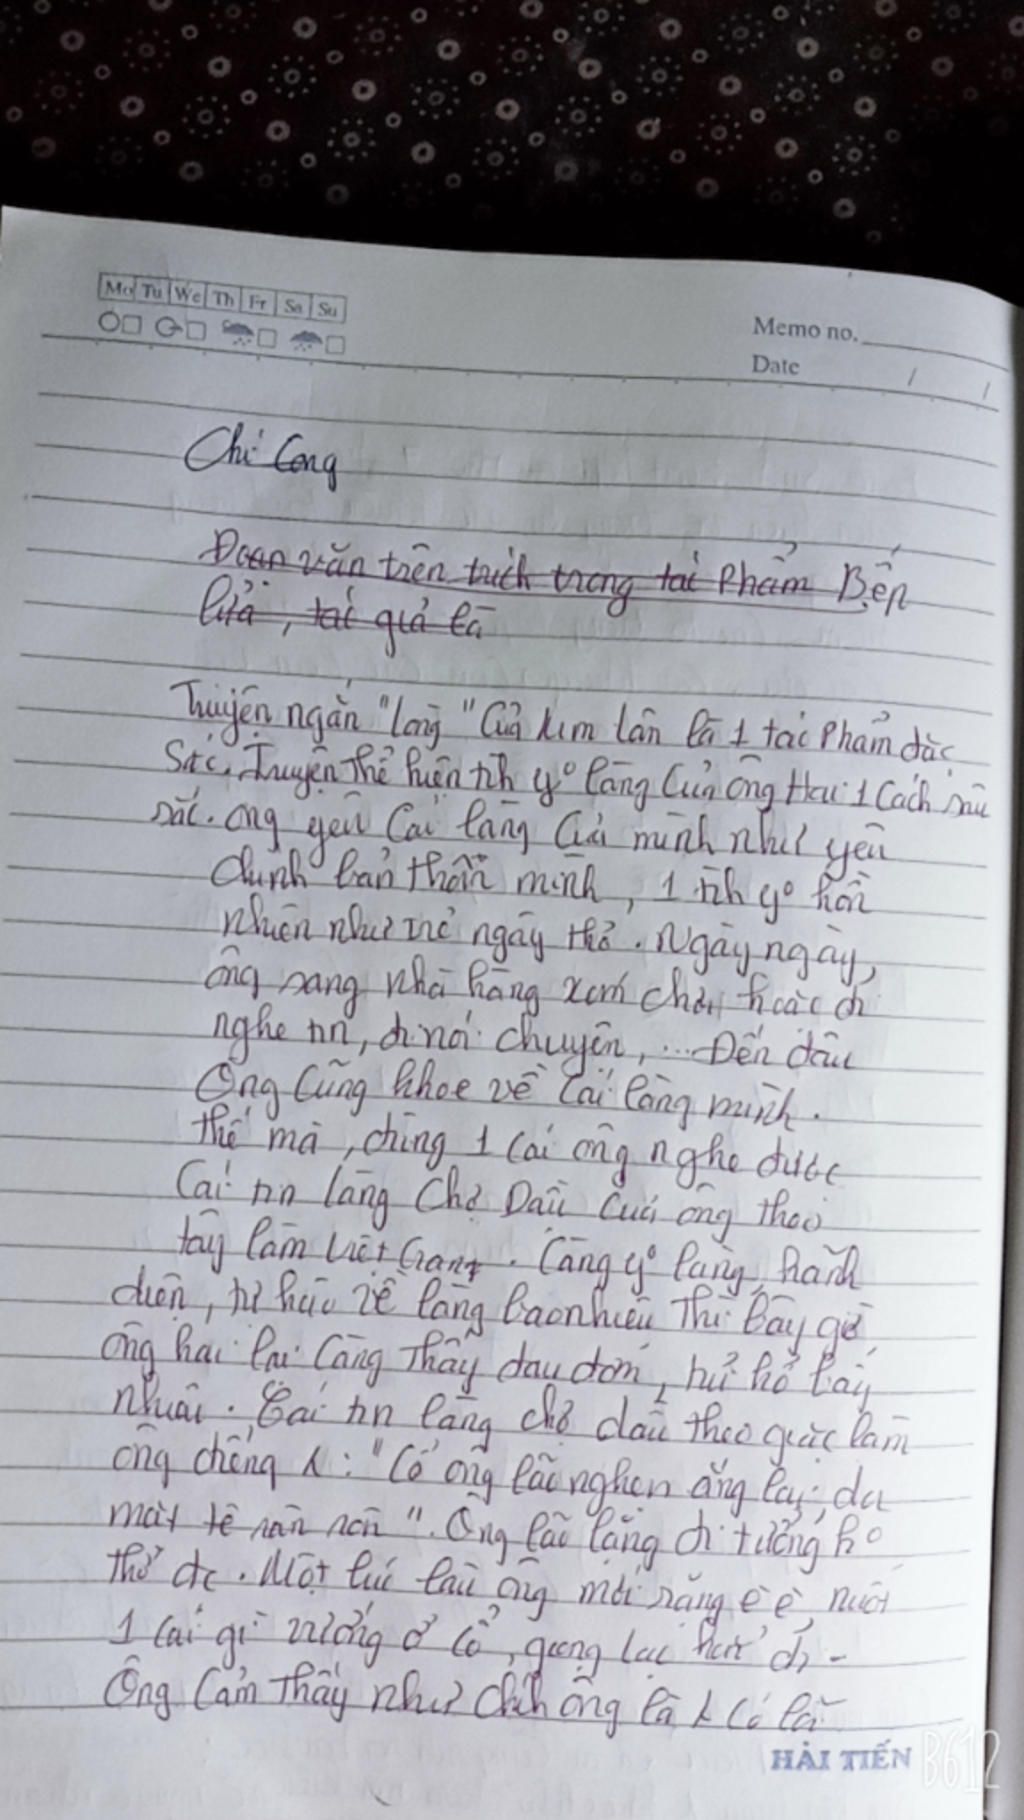 Mo Tu We Th Fr Sa Su
Memo no.
Date / /
Chí Công
Đoạn văn trên trích trong tác phẩm Bếp
lửa, tác giả là
Truyện ngắn "làng" Của Kim lân là 1 tác phẩm đặc
Sắc. Truyện thể hiện th yº làng Của ông Hai 1 Cách sâu
sắc. ông yêu Cái làng Của mình như yêu
chính bản thân mình, 1 th yº hồn
nhiên như trẻ ngây thơ. Ngày ngày,
ông sang nhà hàng xóm chơi, hoặc đi
nghe tin, đi nói chuyện, ... Đến đâu
Ông Cũng khoe về Cái làng mình.
thế mà, đùng 1 Cái ông nghe được
Cái tin làng Chợ Dầu Của ông theo
tây làm Việt Gian. Càng yº làng, hãnh
diện, tự hào về làng bao nhiêu Thì bây giờ
ông hai lại Càng Thấy đau đớn, tủi hổ bấy
nhiêu. Cái tin làng chợ dầu theo giặc làm
ông : "Cổ ông lão nghẹn ắng lại, da
mặt tê rân rân". Ông lão lặng đi tưởng kº
thở đc. Một lúc lâu ông mới rặng è è, nuốt
1 Cái gì vướng ở Cổ, giọng lạc hẳn đi -
Ông Cảm Thấy như chính ông là k Có lỗi
HẢI TIẾN
B612